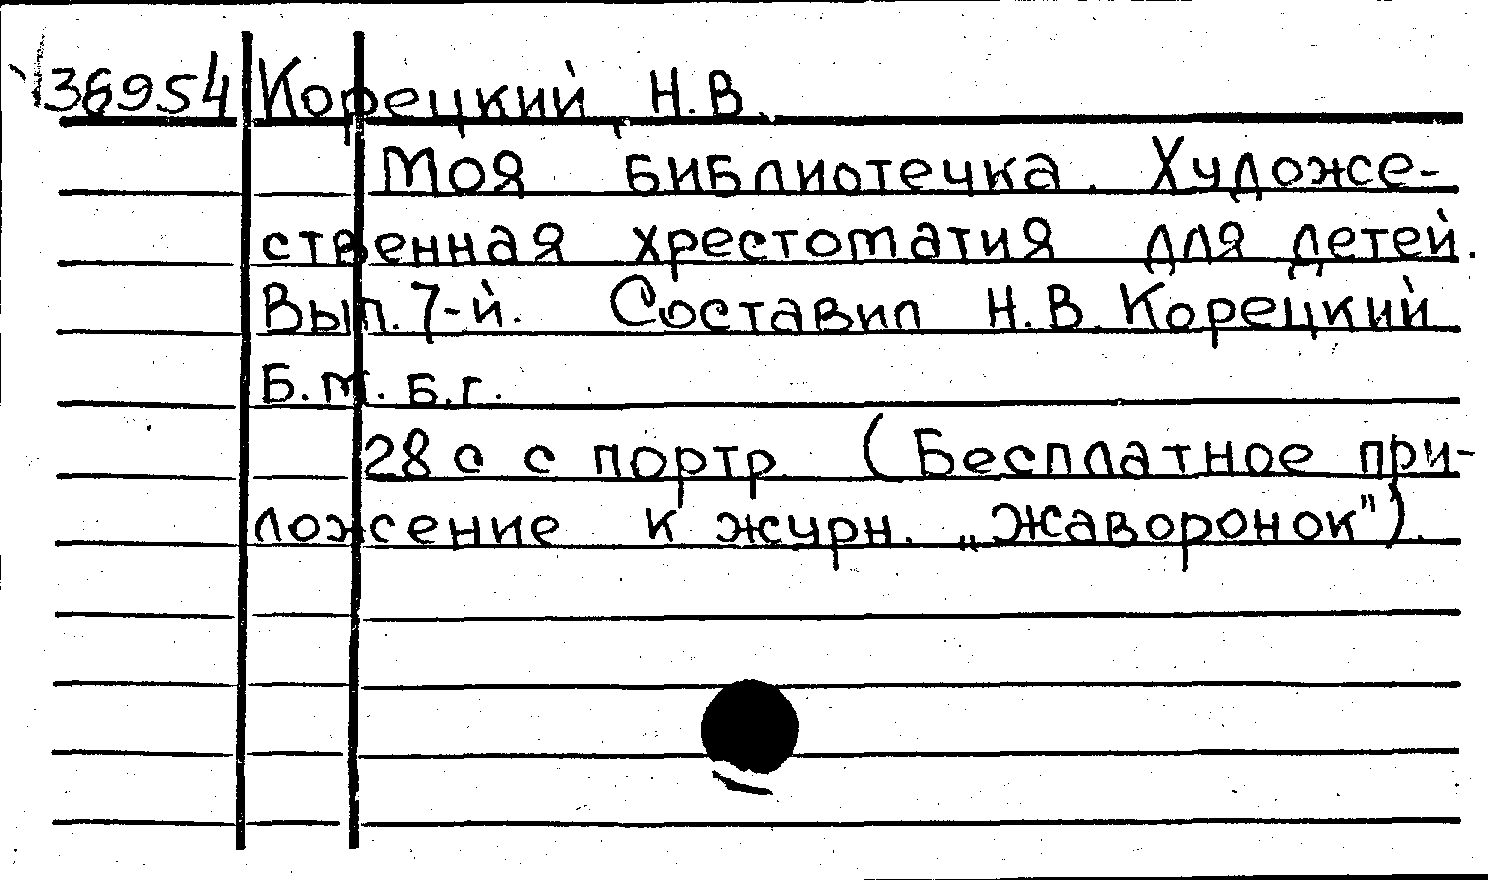 36954 Корецкий, Н.В.
Моя библиотечка. Художе-
ственная хрестоматия для детей.
Вып. 7-й. Составил Н.В. Корецкий
Б.м. б.г.
28 с с портр. (Бесплатное при-
ложение к журн. „Жаворонок").